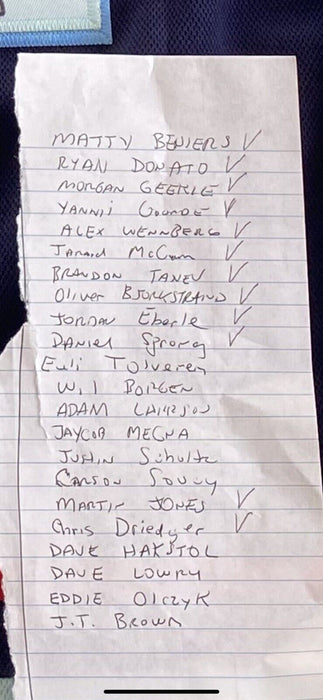 MATTY BENIERS ✓
RYAN DONATO ✓
MORGAN GEEKIE ✓
YANNI GOURDE ✓
ALEX WENNBERG ✓
Jared McCann ✓
BRANDON TANEV ✓
Oliver BJORKSTRAND ✓
JORDAN Eberle ✓
DANIEL Sprong ✓
Eeli Tolvanen
Will BORGEN
ADAM LARSSON
JAYCOB MEGNA
JUSTIN Schultz
Carson Soucy
MARTIN JONES ✓
Chris Driedger ✓
DAVE HAKSTOL
DAVE LOWRY
EDDIE Olczyk
J.T. Brown